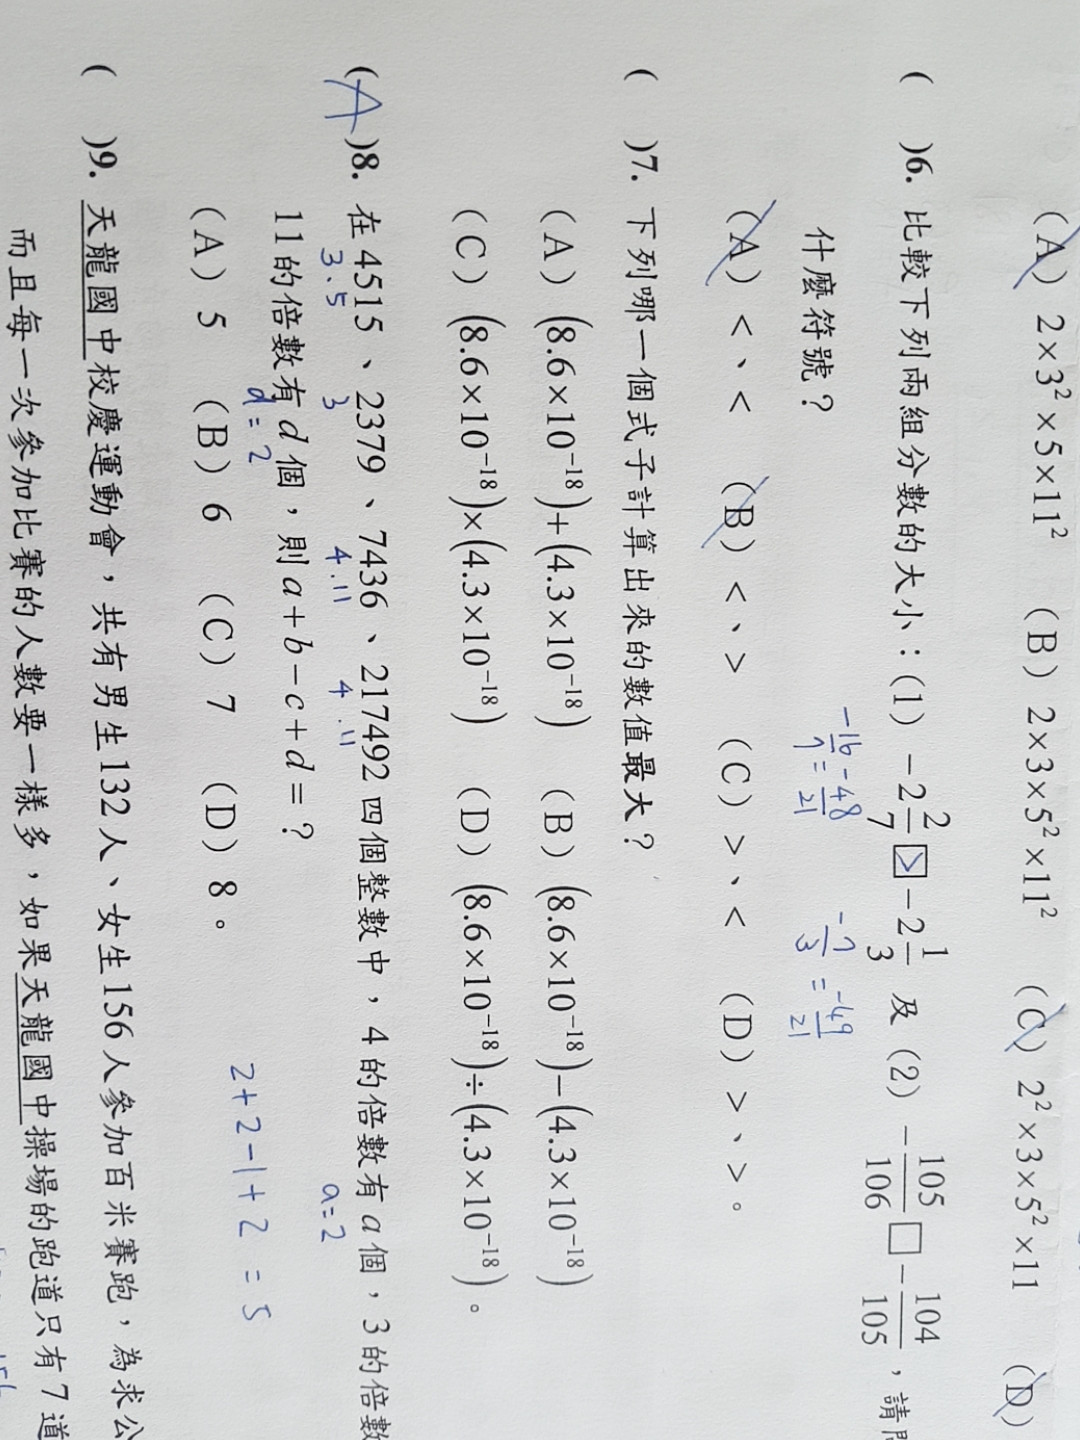 (A) 2×3²×5×11² (B) 2×3×5²×11² (C) 2²×3×5²×11 (D)
( )6. 比較下列兩組分數的大小：(1) -2 2/7 > -2 1/3 及 (2) -105/106 □ -104/105，請問
-16/7 = -48/21 -7/3 = -49/21
什麼符號？
(A) <、< (B) <、> (C) >、< (D) >、>。
( )7. 下列哪一個式子計算出來的數值最大？
(A) (8.6×10⁻¹⁸)+(4.3×10⁻¹⁸) (B) (8.6×10⁻¹⁸)−(4.3×10⁻¹⁸)
(C) (8.6×10⁻¹⁸)×(4.3×10⁻¹⁸) (D) (8.6×10⁻¹⁸)÷(4.3×10⁻¹⁸)。
(A)8. 在4515、2379、7436、217492四個整數中，4的倍數有a個，3的倍數
3.5 3 4.11 4.11 a=2
11的倍數有d個，則a+b−c+d=？
d=2
2+2−1+2=5
(A) 5 (B) 6 (C) 7 (D) 8。
( )9. 天龍國中校慶運動會，共有男生132人、女生156人參加百米賽跑，為求公
而且每一次參加比賽的人數要一樣多，如果天龍國中操場的跑道只有7道